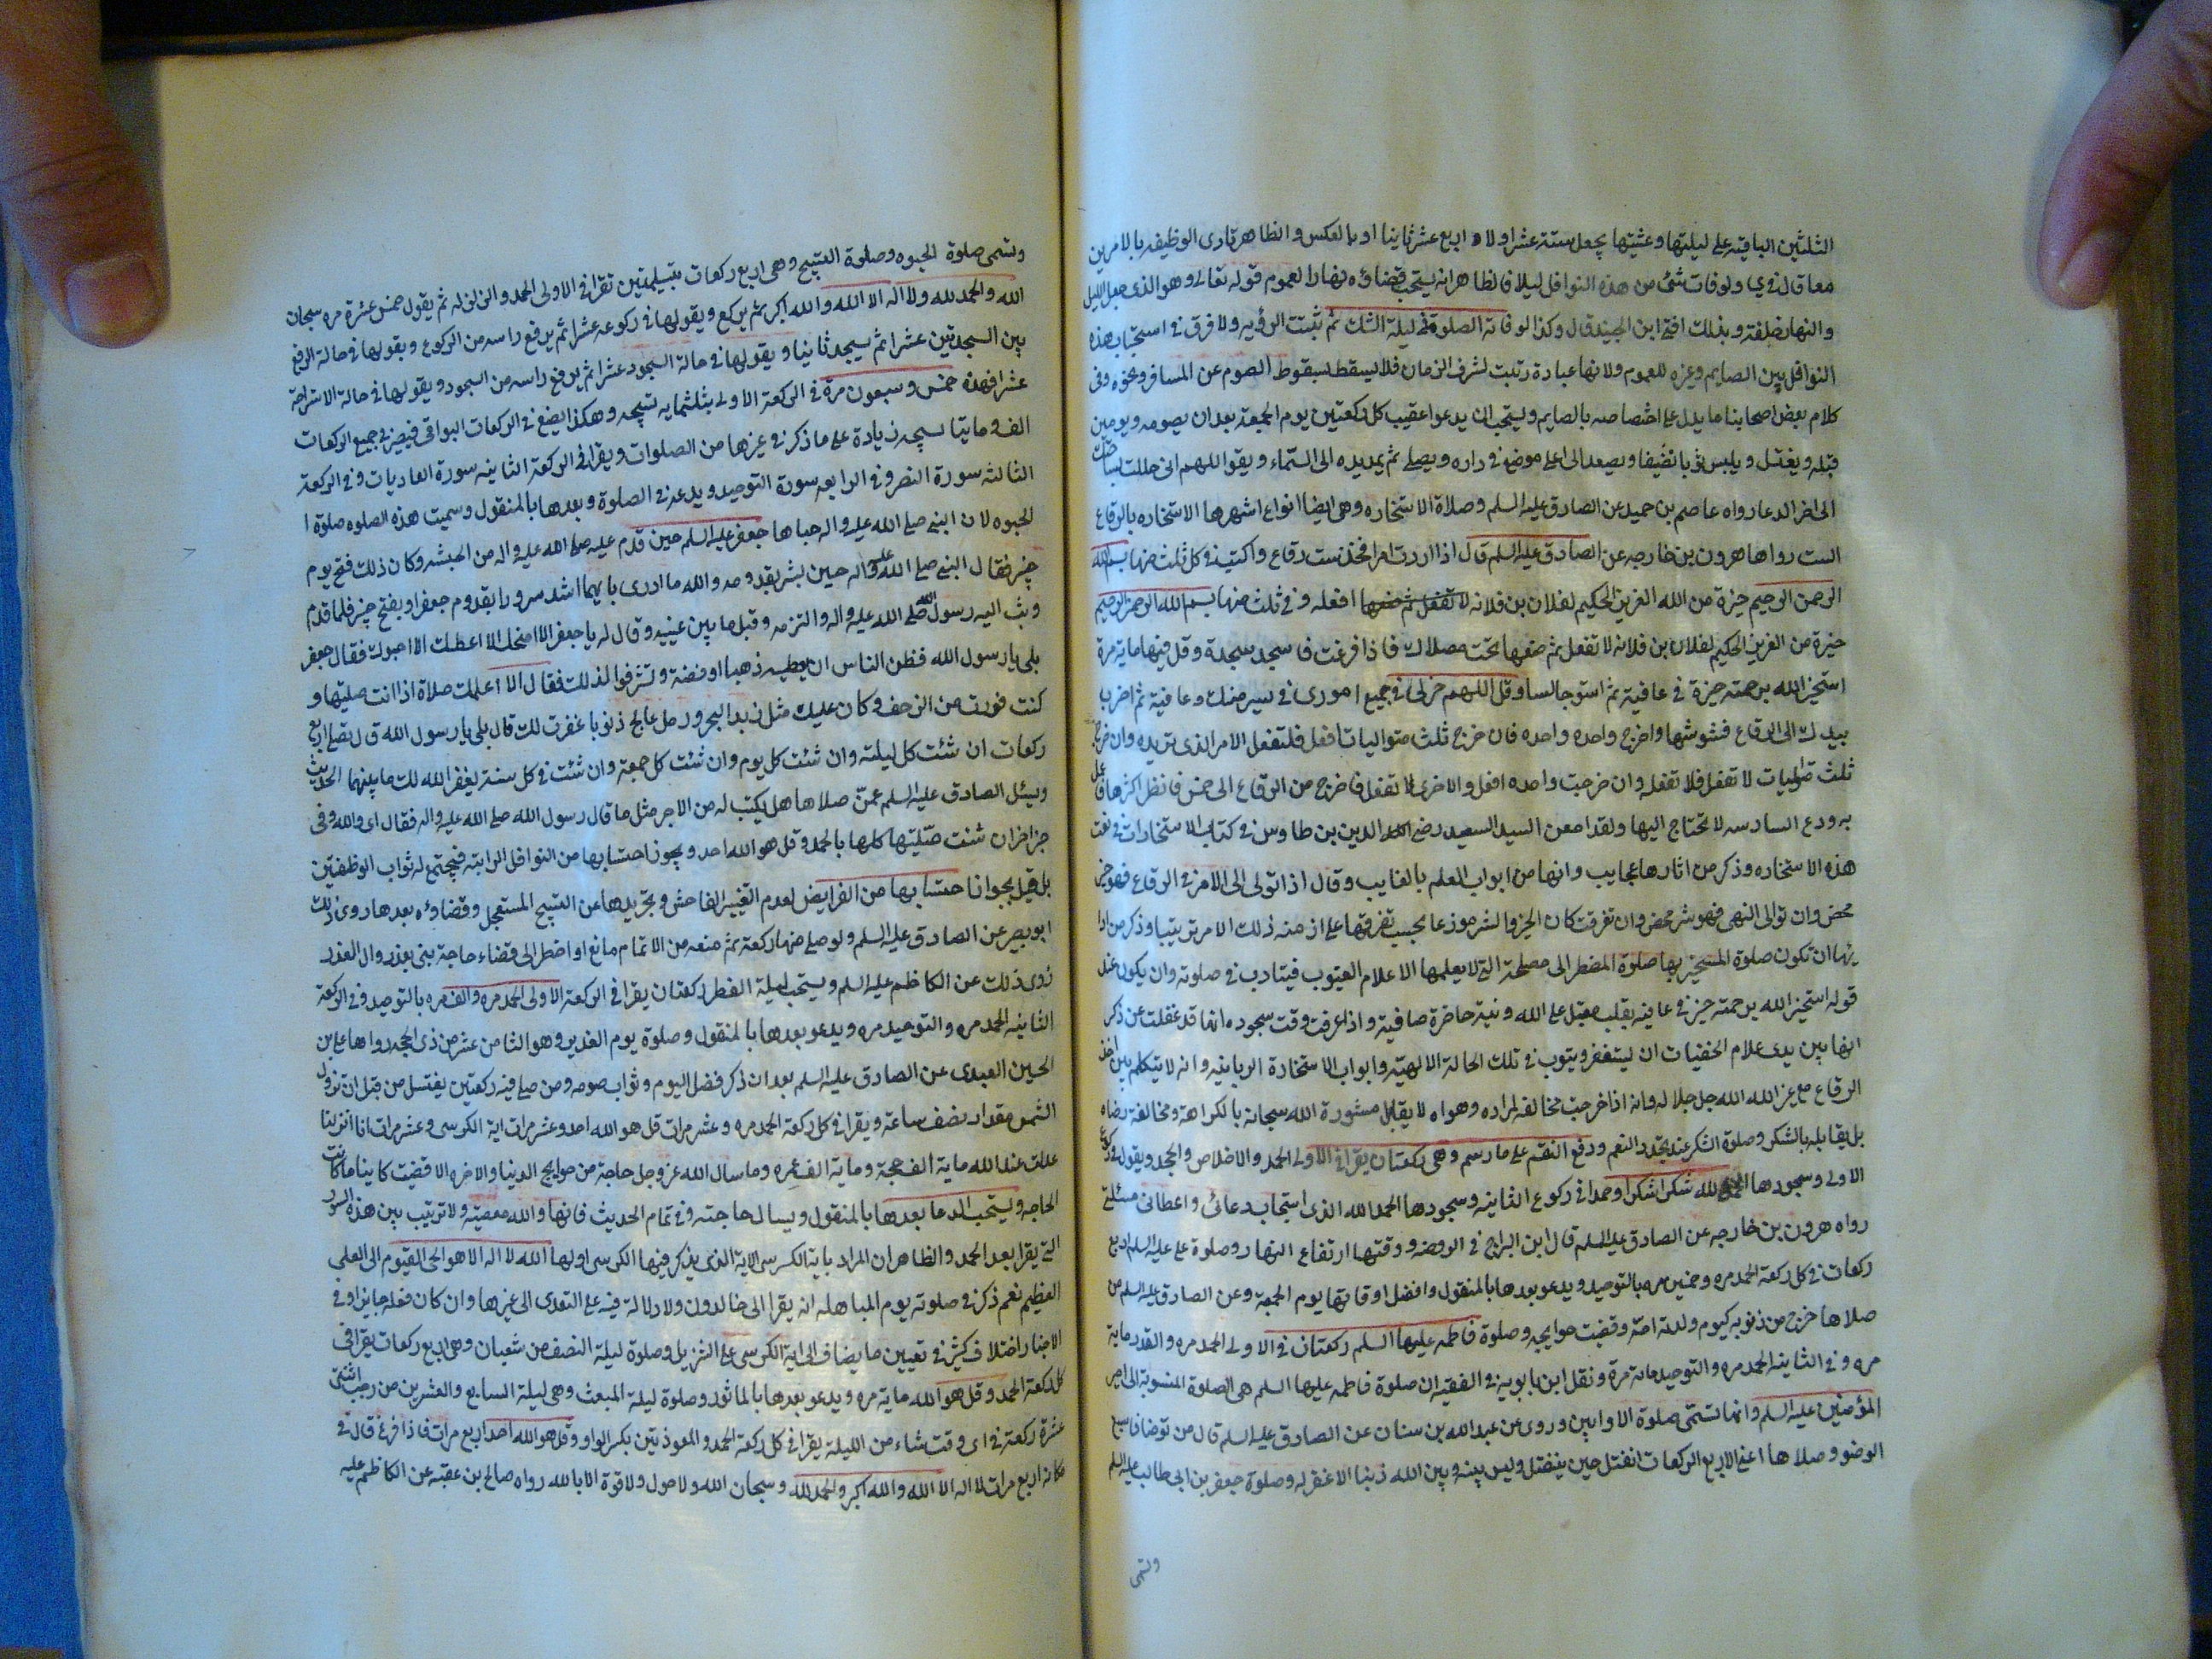 الثلثين الباقيه على ليلتها وعشيتها يجعل ستة عشر اولا و اربع عشر ثانيا او بالعكس والظاهر تادى الوظيفه بالامرين
معا قال في ي ولو فات شئ من هذه النوافل ليلا فالظاهر انه يستحب قضاؤه نهارا لعموم قوله تعالى وهو الذى جعل الليل
والنهار خلفة وبذلك افتى ابن الجنيد قال وكذا لو فاته الصلوة في ليلة الشك ثم ثبتت الرؤيه ولا فرق في استحباب هذه
النوافل بين الصايم وغيره للعموم ولانها عبادة رتبت لشرف الزمان فلا يسقط بسقوط الصوم عن المسافر ونحوه وفى
كلام بعض اصحابنا ما يدل على اختصاصه بالصايم ويستحب ان يدعوا عقيب كل ركعتين يوم الجمعة بعد ان يصومه ويومين
قبله ويغتسل ويلبس ثوبا نظيفا ويصعد الى اعلى موضع في داره ويصلى ثم يمد يده الى السماء ويقول اللهم انى حللت بساحتك
الى اخر الدعا رواه عاصم بن حميد عن الصادق عليه السلم وصلاة الاستخاره وهى ايضا انواع اشهرها الاستخاره بالرقاع
الست رواها هرون بن خارجه عن الصادق عليه السلم قال اذا اردت امرا فخذ ست رقاع واكتب في كل ثلث منها بسم الله
الرحمن الرحيم خيرة من الله العزيز الحكيم لفلان بن فلانه لا تفعل ثم ضعها افعله وفي ثلث منها بسم الله الرحمن الرحيم
خيرة من العزيز الحكيم لفلان بن فلانه لا تفعل ثم ضعها تحت مصلاك فاذا فرغت فاسجد سجدة وقل فيها ماية مرة
استخير الله برحمته خيرة في عافية ثم استو جالسا وقل اللهم خرلى في جميع امورى في يسر منك وعافية ثم اضرب
بيدك الى الرقاع فشوشها واخرج واحده واحده فان خرج ثلث متواليات افعل فلتفعل الامر الذى تريده وان خرج
ثلث متواليات لا تفعل فلا تفعله وان خرجت واحده افعل والاخرى لا تفعل فاخرج من الرقاع الى خمس فانظر اكثرها فاعمل
به ودع السادسه لا تحتاج اليها ولقد امعن السيد السعيد رضي الدين بن طاوس في كتاب الاستخارات في نعت
هذه الاستخاره وذكر من اثارها عجايب وانها من ابواب العلم بالغايب وقال اذا توالى الامر في الرقاع فهو خير
محض وان توالى النهى فهو شر محض وان تفرقت كان الخير والشر موزعا بحسب تفرقها على ازمنه ذلك الامر ترتيبا وذكر من ادا
بها ان تكون صلوة المستخير بها صلوة المضطر الى مصلحة التى لا يعلمها الا علام الغيوب فيتادب في صلوته وان يكون عند
قوله استخير الله برحمته خيرة في عافيه بقلب مقبل على الله ونية حاضرة صافية واذا عرفت وقت سجوده انها قد غفلت عن ذكر
انها بين يدى علام الخفيات ان يستغفر ويتوب في تلك الحالة الالهية وابواب الاستخارة الربانيه وانه لا يتكلم بين اخذ
الرقاع مع غير الله جل جلاله وانه اذا خرجت مخالفة لمراده وهواه لا يقابل مشورة الله سبحانه بالكراهة ومخالفة رضاه
بل يقابله بالشكر وصلوة الشكر عند تجدد النعم ودفع النقم على ما رسم وهى ركعتان يقرا في الاولى الحمد والاخلاص والجحد ويقول في ركوع
الاولى وسجودها الحمد لله شكرا شكرا وحمدا في ركوع الثانيه وسجودها الحمد لله الذى استجاب دعائى واعطانى مسئلتى
رواه هرون بن خارجه عن الصادق عليه السلم قال ابن البراج في الروضه ووقتها ارتفاع النهار وصلوة على عليه السلم اربع
ركعات في كل ركعة الحمد مره وخمسين مره بالتوحيد ويدعو بعدها بالمنقول وافضل اوقاتها يوم الجمعة وعن الصادق عليه السلم من
صلاها خرج من ذنوبه كيوم ولدته امه وقضيت حوايجه وصلوة فاطمه عليها السلم ركعتان في الاولى الحمد مره والقدر ماية
مره وفي الثانيه الحمد مره والتوحيد ماية مرة ونقل ابن بابويه في الفقيه ان صلوة فاطمه عليها السلم هى الصلوة المنسوبة الى امير
المؤمنين عليه السلم وانها تسمى صلوة الاوابين وروى عن عبد الله بن سنان عن الصادق عليه السلم قال من توضا فاسبغ
الوضو وصلاها اعنى الاربع الركعات انفتل حين ينفتل وليس بينه وبين الله ذنبا الا غفر له وصلوة جعفر بن ابى طالب عليه السلم
وتسمى
وتسمى صلوة الحبوه وصلوة التسبيح وهى اربع ركعات بتسليمتين تقرا في الاولى الحمد والزلزله ثم يقول خمس عشرة مره سبحان
الله والحمد لله ولا اله الا الله والله اكبر ثم يركع ويقولها في ركوعه عشرا ثم يرفع راسه من الركوع ويقولها في حالة الرفع
بين السجدتين عشرا ثم يسجد ثانيا ويقولها في حالة السجود عشرا ثم يرفع راسه من السجود ويقولها في حالة الاستراحة
عشرا فهذه خمس وسبعون مرة في الركعة الاولى بثلثمايه تسبيحه وهكذا يصنع في الركعات البواقى فيصير في جميع الركعات
الف ومايتا تسبيحه زيادة على ما ذكر في غيرها من الصلوات ويقرا في الركعة الثانيه سورة العاديات وفي الركعة
الثالثه سورة النصر وفي الرابعه سورة التوحيد ويدعو في الصلوة وبعدها بالمنقول وسميت هذه الصلوه صلوة ا
لحبوه لان النبى صلى الله عليه واله حباها جعفر عليه السلم حين قدم عليه صلى الله عليه واله من الحبشه وكان ذلك فتح يوم
خيبر فقال النبى صلى الله عليه واله حين بشر بقدومه والله ما ادرى بايهما اشد سرورا بقدوم جعفر او بفتح خيبر فلما قدم
وثب اليه رسول الله صلى الله عليه واله والتزمه وقبل ما بين عينيه وقال له يا جعفر الا امنحك الا اعطيك الا احبوك فقال جعفر
بلى يا رسول الله فظن الناس ان يعطيه ذهبا او فضة وتشرفوا لذلك فقال الا اعلمك صلاة اذا انت صليتها و
كنت فررت من الزحف وكان عليك مثل زبد البحر ورمل عالج ذنوبا غفرت لك قال بلى يا رسول الله قال تصلى اربع
ركعات ان شئت كل ليلة وان شئت كل يوم وان شئت كل جمعة وان شئت في كل سنة يغفر الله لك ما بينهما الحديث
وسئل الصادق عليه السلم عمن صلاها هل يكتب له من الاجر مثل ما قال رسول الله صلى الله عليه واله فقال اى والله وفى
خبر اخر ان شئت صليتها كلها بالحمد وقل هو الله احد ويجوز احتسابها من النوافل الراتبه فيجتمع له ثواب الوظفتين
بل قيل بجواز احتسابها من الفرايض لعدم التغيير الفاحش وتجريدها عن التسبيح المستعجل وقضاؤه بعدها روى ذلك
ابو بصير عن الصادق عليه السلم ولو صلى منها ركعة ثم منعه من الاتمام مانع او اضطر الى قضاء حاجة بنى بعد زوال العذر
روى ذلك عن الكاظم عليه السلم ويستحب ليلة الفطر ركعتان يقرا في الركعة الاولى الحمد مره والف مره بالتوحيد وفي الركعة
الثانيه الحمد مره والتوحيد مره ويدعو بعدها بالمنقول وصلوة يوم الغدير وهو الثامن عشر من ذى الحجه رواها على بن
الحسين العبدى عن الصادق عليه السلم بعد ان ذكر فضل اليوم وثواب صومه ومن صلى فيه ركعتين يغتسل من قبل ان تزول
الشمس مقدار نصف ساعة ويقرا في كل ركعة الحمد مره وعشر مرات قل هو الله احد وعشر مرات اية الكرسى وعشر مرات انا انزلنا
عدلت عند الله ماية الف حجة وماية الف عمره وما سال الله عز وجل حاجة من حوايج الدنيا والاخره الا قضيت كاينا ما كانت
الحاجه ويستحب الدعا بعدها بالمنقول ويسال حاجته وفي تمام الحديث فانها والله مقضيته ولا ترتيب بين هذه السور
التى يقرا بعد الحمد والظاهر ان المراد باية الكرسى الاية الذى يذكر فيها الكرسى اولها الله لا اله الا هو الحى القيوم الى العلى
العظيم نعم ذكر في صلوته يوم المباهله انه يقرا الى خالدون ولا دلالة فيه على التعدى الى غيرها وان كان فعله جايزا وفي
الاخبار اختلاف كثير في تعيين ما يضاف الى اية الكرسى على التنزيل وصلوة ليلة النصف من شعبان وهى اربع ركعات يقرا في
كل ركعة الحمد وقل هو الله ماية مره ويدعو بعدها بالماثور وصلوة ليلة المبعث وهى ليلة السابع والعشرين من رجب اثنتى
عشرة ركعة في اى وقت شاء من الليلة يقرا في كل ركعة الحمد والمعوذتين بكسر الواو وقل هو الله احد اربع مرات فاذا فرغ قال في
مكانه اربع مرات لا اله الا الله والله اكبر والحمد لله وسبحان الله ولا حول ولا قوة الا بالله رواه صالح بن عقبه عن الكاظم عليه